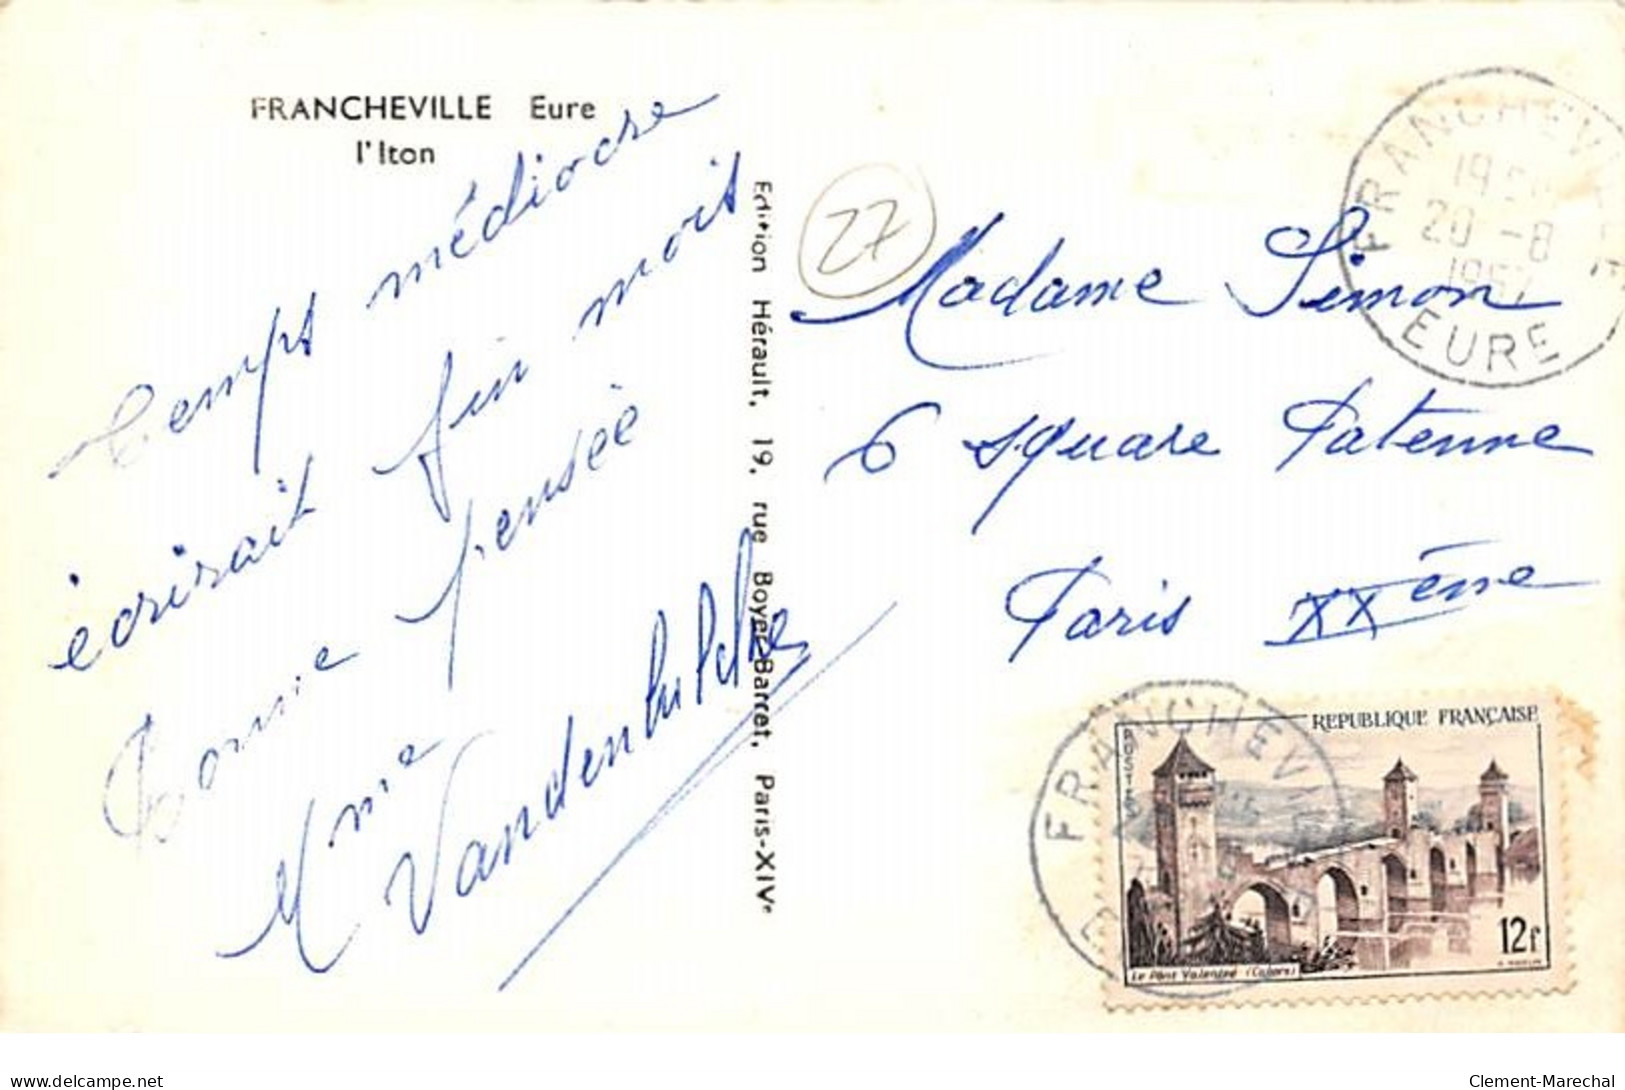 FRANCHEVILLE Eure
l'Iton
temps médiocre
écrirait fin moit
Bonne pensée
Mme
Vandenbulcke
Edition Hérault, 19, rue Boyer-Barret, Paris-XIVe
27
Madame Simon
6 square Patenne
Paris XXème
FRANCHEVILLE
20 -8
1957
EURE
REPUBLIQUE FRANÇAISE
POSTES
Le Pont Valentré (Cahors)
12f
FRANCHEV
delcampe.net
Clement-Marechal